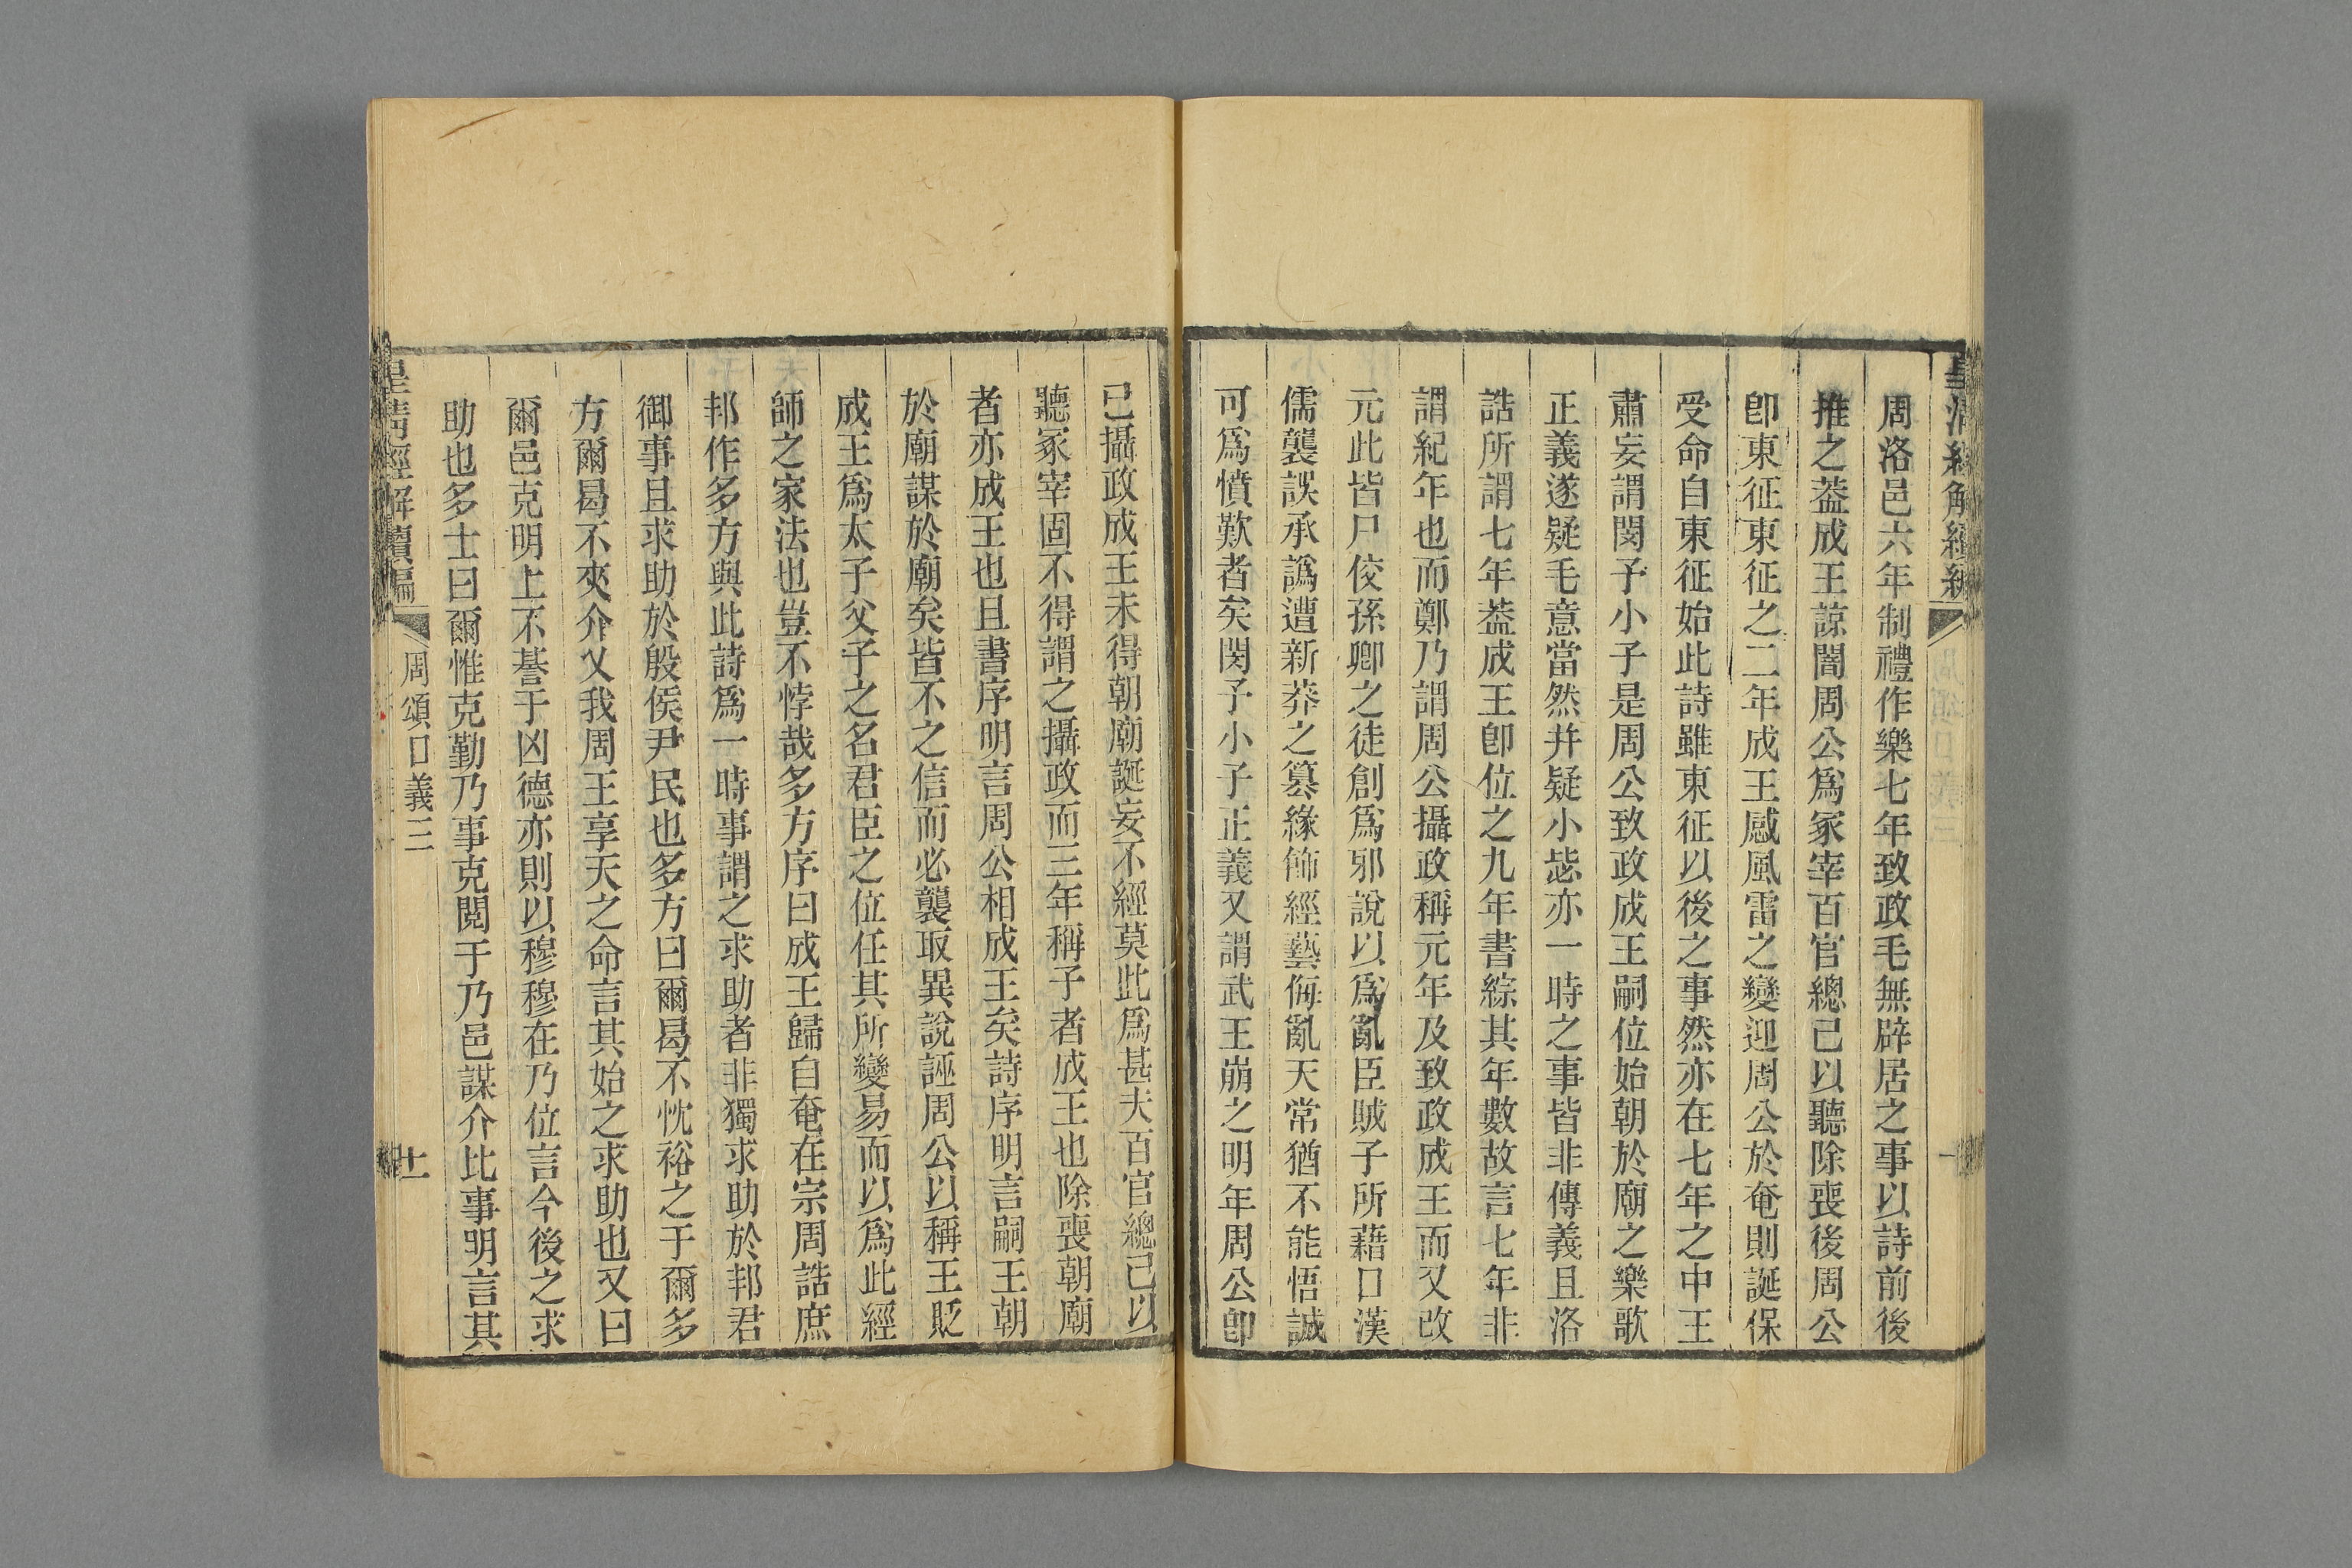 周洛邑六年制禮作樂七年致政毛無辟居之事以詩前後
推之葢成王諒闇周公爲冢宰百官總己以聽除喪後周公
卽東征東征之二年成王感風雷之變迎周公於奄則誕保
受命自東征始此詩雖東征以後之事然亦在七年之中王
肅妄謂閔予小子是周公致政成王嗣位始朝於廟之樂歌
正義遂疑毛意當然并疑小毖亦一時之事皆非傳義且洛
誥所謂七年葢成王卽位之九年書綜其年數故言七年非
謂紀年也而鄭乃謂周公攝政稱元年及致政成王而又改
元此皆尸佼孫卿之徒創爲邪說以爲亂臣賊子所藉口漢
儒襲誤承譌遭新莽之篡緣飾經藝侮亂天常猶不能悟誠
可爲憤歎者矣閔予小子正義又謂武王崩之明年周公卽
已攝政成王未得朝廟誕妄不經莫此爲甚夫百官總己以
聽冢宰固不得謂之攝政而三年稱子者成王也除喪朝廟
者亦成王也且書序明言周公相成王矣詩序明言嗣王朝
於廟謀於廟矣皆不之信而必襲取異說誣周公以稱王貶
成王爲太子父子之名君臣之位任其所變易而以爲此經
師之家法也豈不悖哉多方序曰成王歸自奄在宗周誥庶
邦作多方與此詩爲一時事謂之求助者非獨求助於邦君
御事且求助於殷侯尹民也多方曰爾曷不忱裕之于爾多
方爾曷不夾介乂我周王享天之命言其始之求助也又曰
爾邑克明上不諅于凶德亦則以穆穆在乃位言今後之求
助也多士曰爾惟克勤乃事克閱于乃邑謀介比事明言其
皇清經解續編
周頌口義三
十一